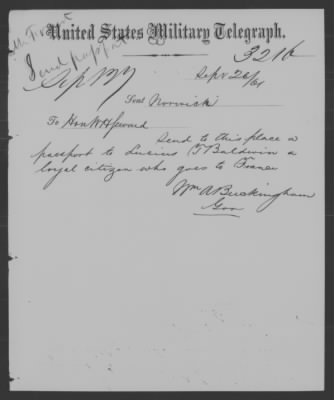 United States Military Telegraph.
Send passport
321b
Sept 26/61
Sent Norwich
To Hon W H Seward
Send to this place a
passport to Lucius T Baldwin a
loyal citizen who goes to France
Wm A Buckingham
Gov